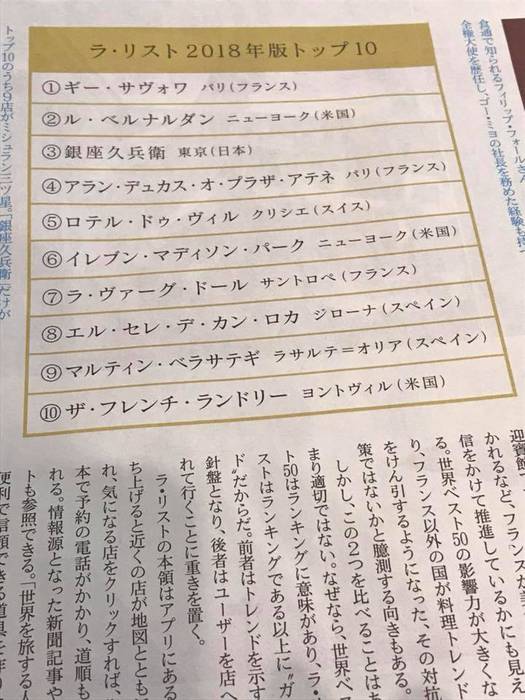 食通で知られるフィリップ・フォールさん
全権大使を歴任し、ゴー・ミヨの社長を務めた経験も持つ
ラ・リスト2018年版トップ10
①ギー・サヴォワ パリ(フランス)
②ル・ベルナルダン ニューヨーク(米国)
③銀座久兵衛 東京(日本)
④アラン・デュカス・オ・プラザ・アテネ パリ(フランス)
⑤ロテル・ドゥ・ヴィル クリシエ(スイス)
⑥イレブン・マディソン・パーク ニューヨーク(米国)
⑦ラ・ヴァーグ・ドール サントロペ(フランス)
⑧エル・セレ・デ・カン・ロカ ジローナ(スペイン)
⑨マルティン・ベラサテギ ラサルテ=オリア(スペイン)
⑩ザ・フレンチ・ランドリー ヨントヴィル(米国)
トップ10のうち9店がミシュラン三ツ星。「銀座久兵衛」だけが
迎賓館で
かれるなど、フランスが美
信をかけて推進しているかにも見え
る。世界ベスト50の影響力が大きくな
り、フランス以外の国が料理トレンド
をけん引するようになった、その対抗
策ではないかと臆測する向きもある。
しかし、この2つを比べることはあ
まり適切ではない。なぜなら、世界ベス
ト50はランキングに意味があり、ラ・リ
ストはランキングである以上に“ガイ
ド”だからだ。前者はトレンドを示す
針盤となり、後者はユーザーを店へ
れて行くことに重きを置く。
ラ・リストの本領はアプリにある
ち上げると近くの店が地図ととも
れ、気になる店をクリックすれば、
本で予約の電話がかかり、道順も
れる。情報源となった新聞記事や
トも参照できる。「世界を旅する人
便利で信頼できる道具を作り